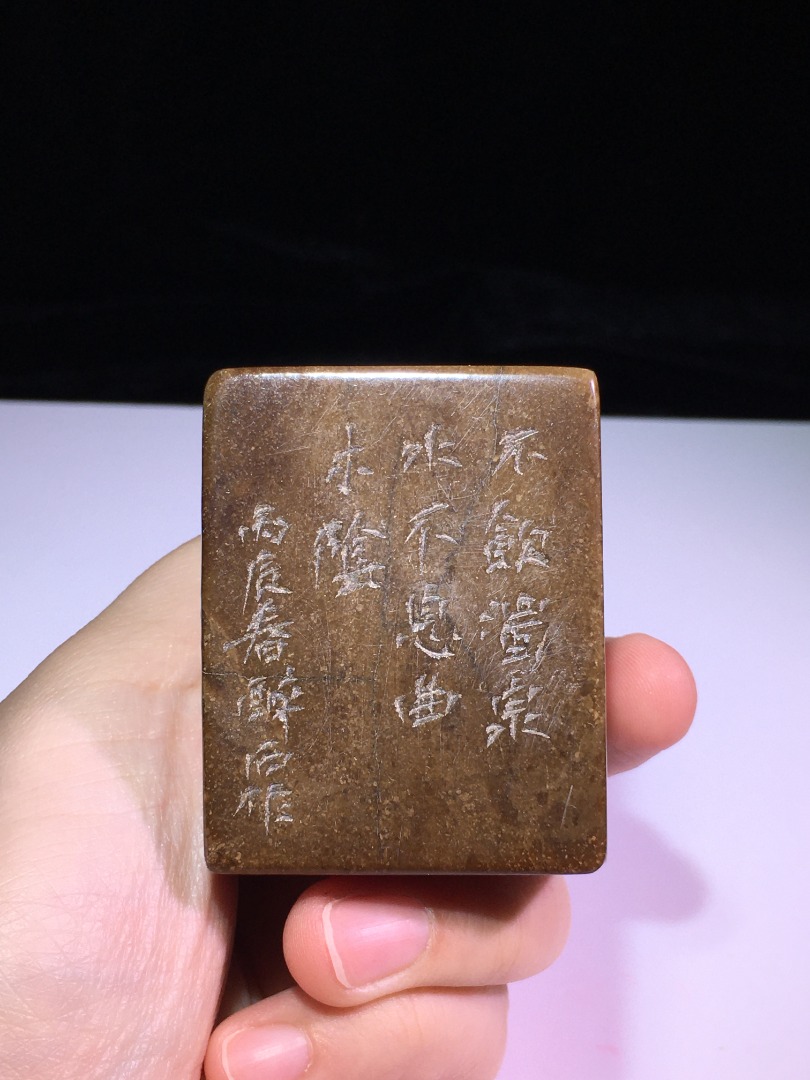 不飲泉
水不息曲
木陰
丙辰春醉作